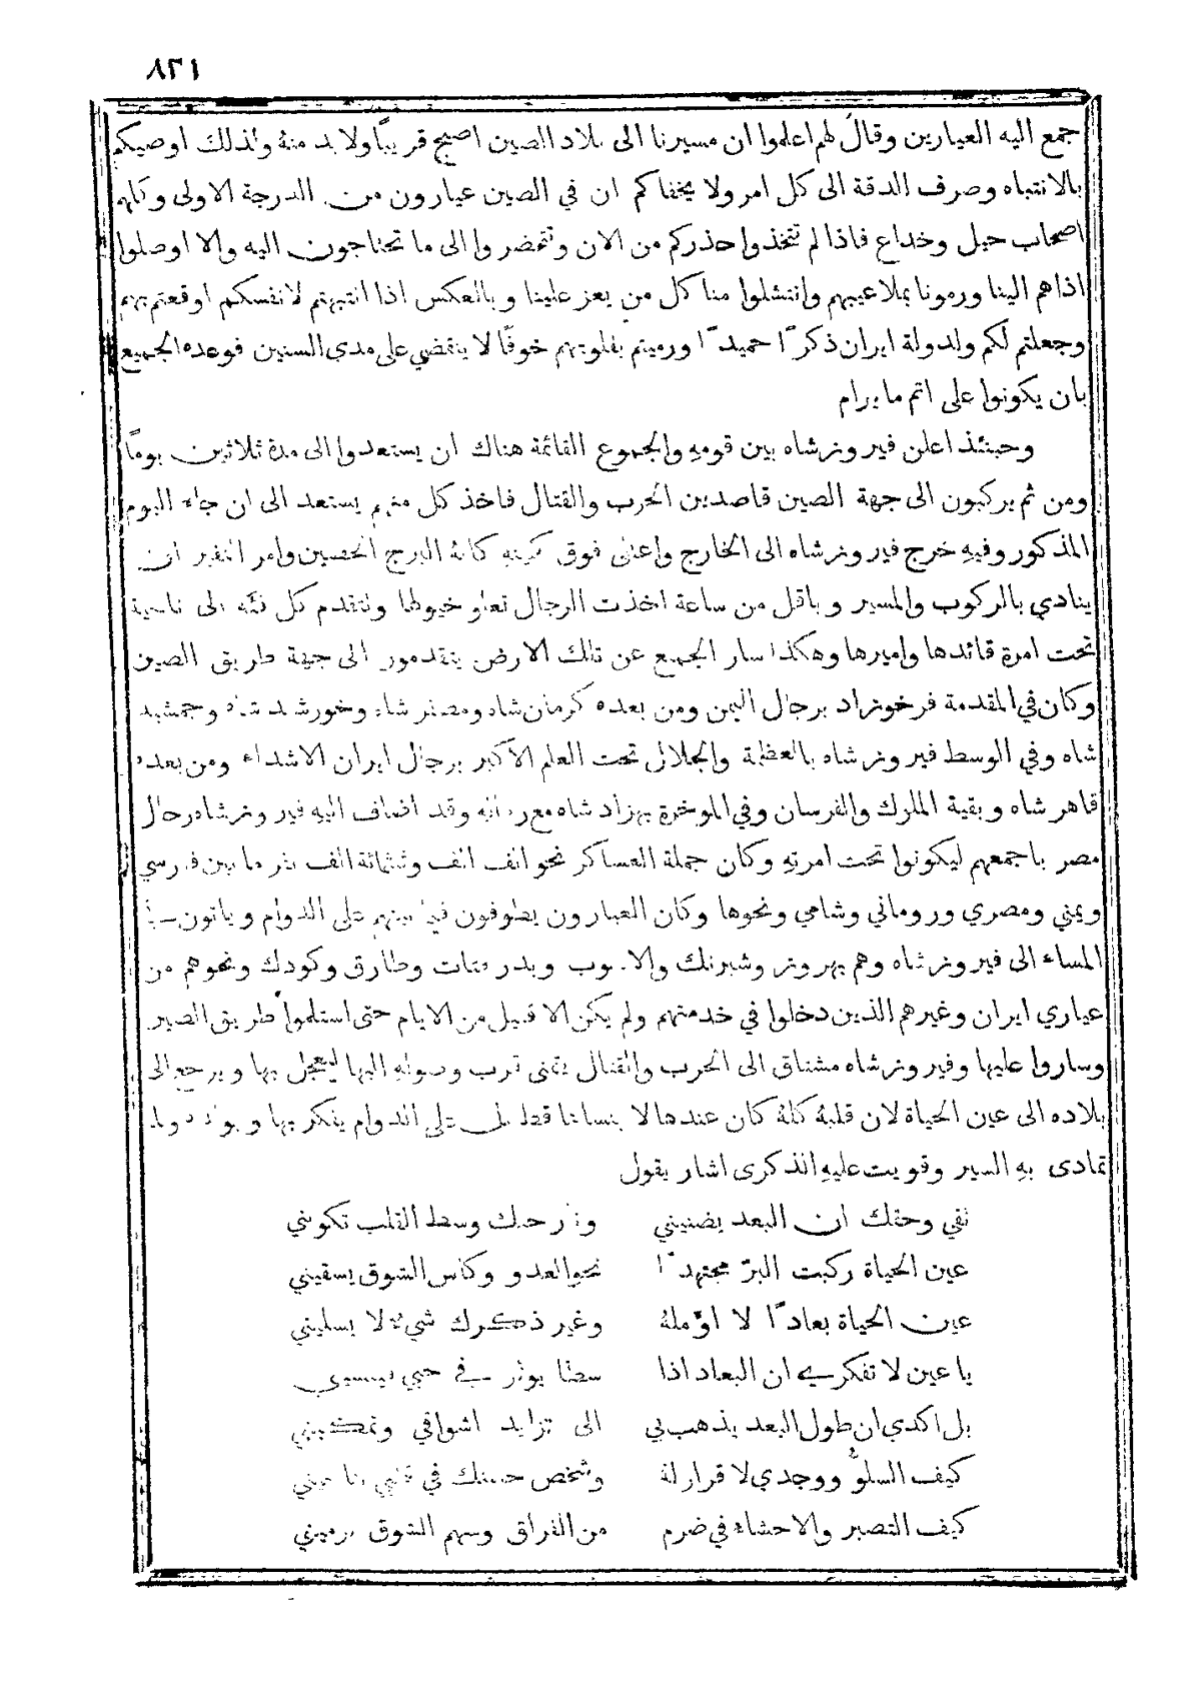 ٨٢١
جمع اليه العيارين وقال لهم اعلموا ان مسيرنا الى بلاد الصين اصبح قريبًا ولا بد منهُ ولذلك اوصيكم
بالانتباه وصرف الدقة الى كل امر ولا يخفاكم ان في الصين عيارون من الدرجة الاولى وكلهم
اصحاب حيل وخداع فاذا لم تتخذوا حذركم من الان وتتحضروا الى ما تحتاجون اليه والا اوصلوا
اذاهم الينا ورمونا بملاعيبهم وانتشلوا منا كل من يعز علينا وبالعكس اذا انتبهتم لانفسكم اوقعتم بهم
وجعلتم لكم ولدولة ايران ذكرًا حميدًا ورميتم بقلوبهم خوفًا لا ينقضي على مدى السنين فوعده الجميع
بان يكونوا على اتم ما يرام
وحينئذ اعلن فيروزشاه بين قومهِ والجموع القائمة هناك ان يستعدوا الى مدة ثلاثين يومًا
ومن ثم يركبون الى جهة الصين قاصدين الحرب والقتال فاخذ كل منهم يستعد الى ان جاء اليوم
المذكور وفيهِ خرج فيروزشاه الى الخارج واعتلى فوق كمينهِ كانهُ البرج الحصين وامر النفير ان
ينادي بالركوب والمسير وباقل من ساعة اخذت الرجال تعلو خيولها وتتقدم كل فئة الى ناحية
تحت امرة قائدها واميرها وهكذا سار الجميع عن تلك الارض يتقدمون الى جهة طريق الصين
وكان في المقدمة فرخوزاد برجال اليمن ومن بعده كرمان شاه ومصفر شاه وخورشد شاه وجمشيد
شاه وفي الوسط فيروزشاه بالعظمة والجلال تحت العلم الاكبر برجال ايران الاشداء ومن بعده
قاهر شاه وبقية الملوك والفرسان وفي المؤخرة بهزاد شاه مع رجاله وقد اضاف اليهِ فيروزشاه رجال
مصر باجمعهم ليكونوا تحت امرتهِ وكان جملة العساكر نحو الف الف وثلثمائة الف نفر ما بين فارسي
ويمني ومصري وروماني وشامي ونحوها وكان العيارون يطوفون فيما بينهم على الدوام وياتون في
المساء الى فيروزشاه وهم بهروز وشبرنك والاشوب وبدرفتات وطارق وكودك ونحوهم من
عياري ايران وغيرهم الذين دخلوا في خدمتهم ولم يكن الا قليل من الايام حتى استلموا طريق الصين
وساروا عليها وفيروزشاه مشتاق الى الحرب والقتال يتمنى قرب وصولهِ اليها ليعجل بها ويرجع الى
بلاده الى عين الحياة لان قلبهُ كلهُ كان عندها لا ينساها قط بل على الدوام يفكر بها
تمادى بهِ السير وقويت عليهِ الذكرى اشار يقول
ثقي وحقك ان البعد يضنيني ونار حبك وسط القلب تكويني
عين الحياة ركبت البرّ مجتهدًا نحو العدو وكأس الشوق يسقيني
عين الحياة بعادًا لا اوّملهُ وغير ذكرك شيء لا يسليني
يا عين لا تفكري ان البعاد اذا سطا يوثر في حبي
بل اكدي ان طول البعد يذهب بي الى تزايد اشواقي وتمكيني
كيف السلوُّ ووجدي لا قرار لهُ وشخص حسنك في قلبي يناجيني
كيف التصبر والاحشاء في ضرم من الفراق وسهم الشوق يرميني